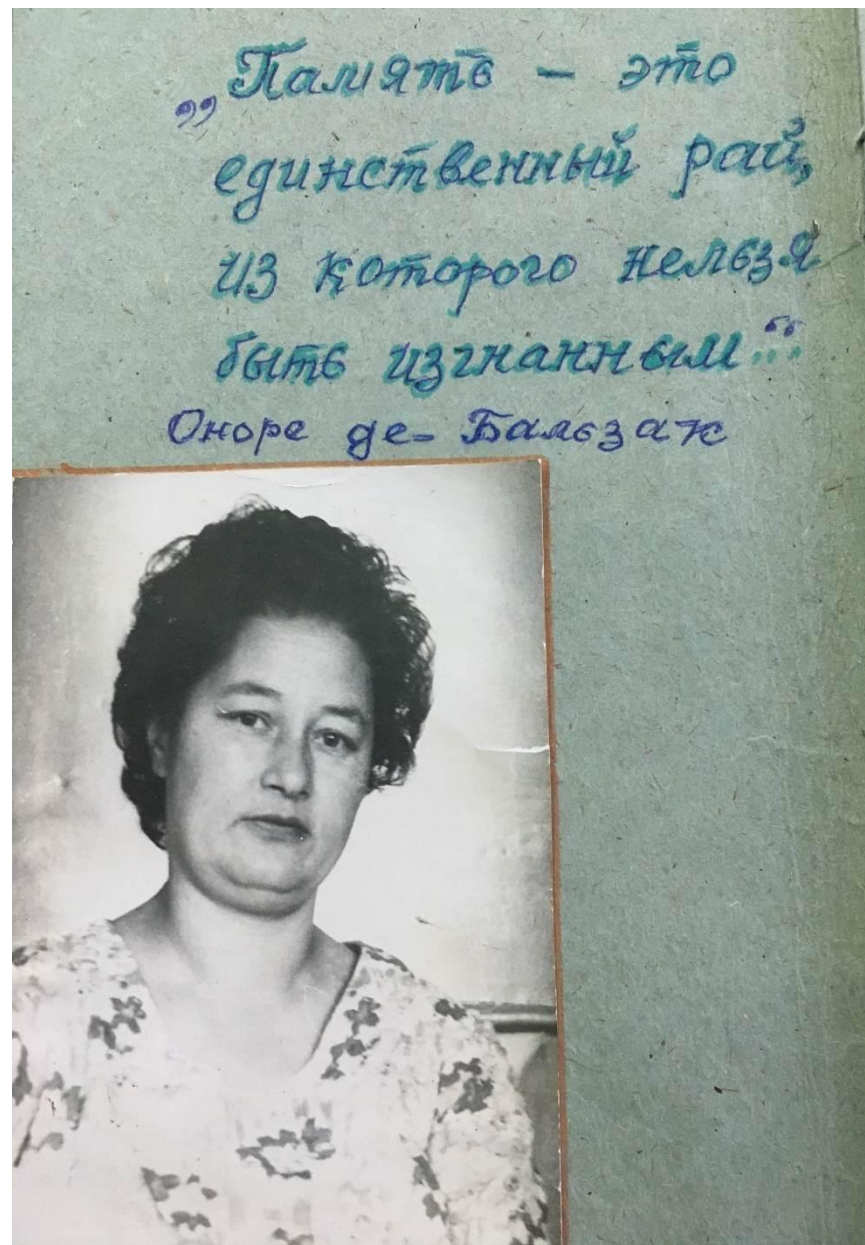 „Память – это
единственный рай,
из которого нельзя
быть изгнанным“...
Оноре де- Бальзак